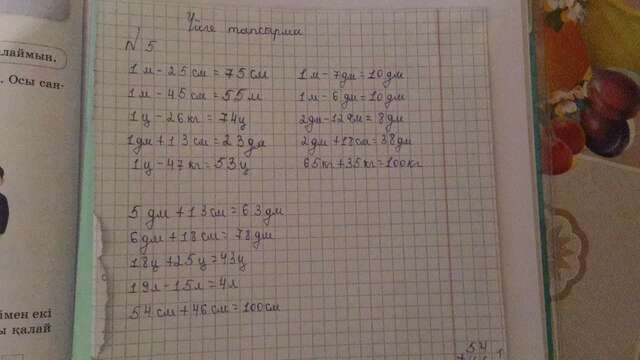 лаймын.
. Осы сан-
Үйге тапсырма
N 5
1 м - 25 см = 75 см
1 м - 45 см = 55 м
1 ц - 26 кг = 74 ц
1 дм + 13 см = 23 дм
1 ц - 47 кг = 53 ц
1 м - 7 дм = 10 дм
1 м - 6 дм = 10 дм
2 дм - 12 см = 8 дм
2 дм + 18 см = 38 дм
65 кг + 35 кг = 100 кг
5 дм + 13 см = 63 дм
6 дм + 18 см = 78 дм
18 ц + 25 ц = 43 ц
19 л - 15 л = 4 л
54 см + 46 см = 100 см
імен екі
ы қалай
54